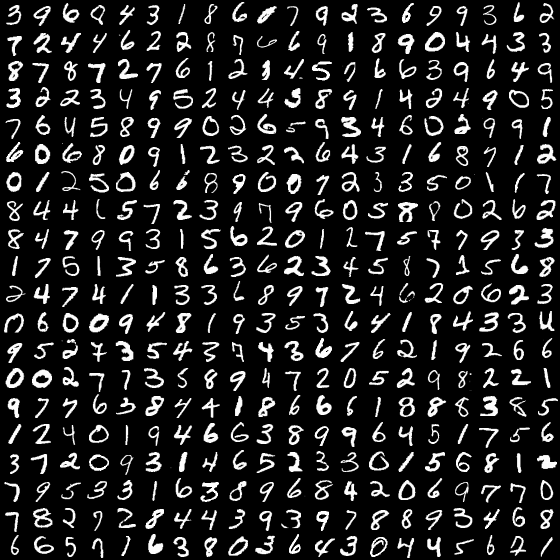 3 9 6 9 4 3 1 8 6 0 7 9 2 3 6 9 9 3 6 2
7 2 4 4 6 2 2 8 7 6 6 9 1 8 9 0 4 4 3 3
8 7 8 7 2 7 6 1 2 1 4 5 7 6 6 3 9 6 4 9
3 2 2 3 4 9 5 2 4 4 3 8 9 1 4 2 4 9 0 5
7 6 4 5 8 9 9 0 2 6 5 9 3 4 6 0 2 9 9 1
6 0 6 8 0 9 1 2 3 2 2 6 4 3 1 6 8 7 1 2
0 1 2 5 0 6 6 8 9 0 0 7 2 3 3 5 0 1 1 7
8 4 4 6 5 7 2 3 9 7 9 6 0 5 8 8 0 2 6 2
8 4 7 9 9 3 1 5 6 2 0 1 2 7 5 7 7 9 3 3
1 7 5 1 3 5 8 6 3 6 2 3 4 5 8 7 1 5 6 8
2 4 7 4 1 1 3 3 6 8 9 7 2 4 6 2 0 6 2 3
0 6 0 0 9 4 8 1 9 3 5 3 6 4 1 8 4 3 3 4
9 5 2 7 3 5 4 3 7 4 3 6 7 6 2 1 9 2 6 6
0 0 2 7 7 3 5 8 9 4 7 2 0 5 2 9 8 2 2 1
9 7 7 6 3 8 4 4 1 8 6 6 6 1 8 8 8 3 8 5
1 2 4 0 1 9 4 6 6 3 8 9 9 6 4 5 1 7 5 6
3 7 2 0 9 3 1 4 6 5 2 3 3 0 1 5 6 8 1 2
7 9 5 3 3 1 6 3 8 9 6 8 4 2 0 6 9 7 7 0
7 8 2 7 2 8 4 4 3 9 3 9 7 8 8 9 3 4 6 8
6 6 5 7 1 6 3 8 0 3 6 4 3 0 4 4 5 6 2 1